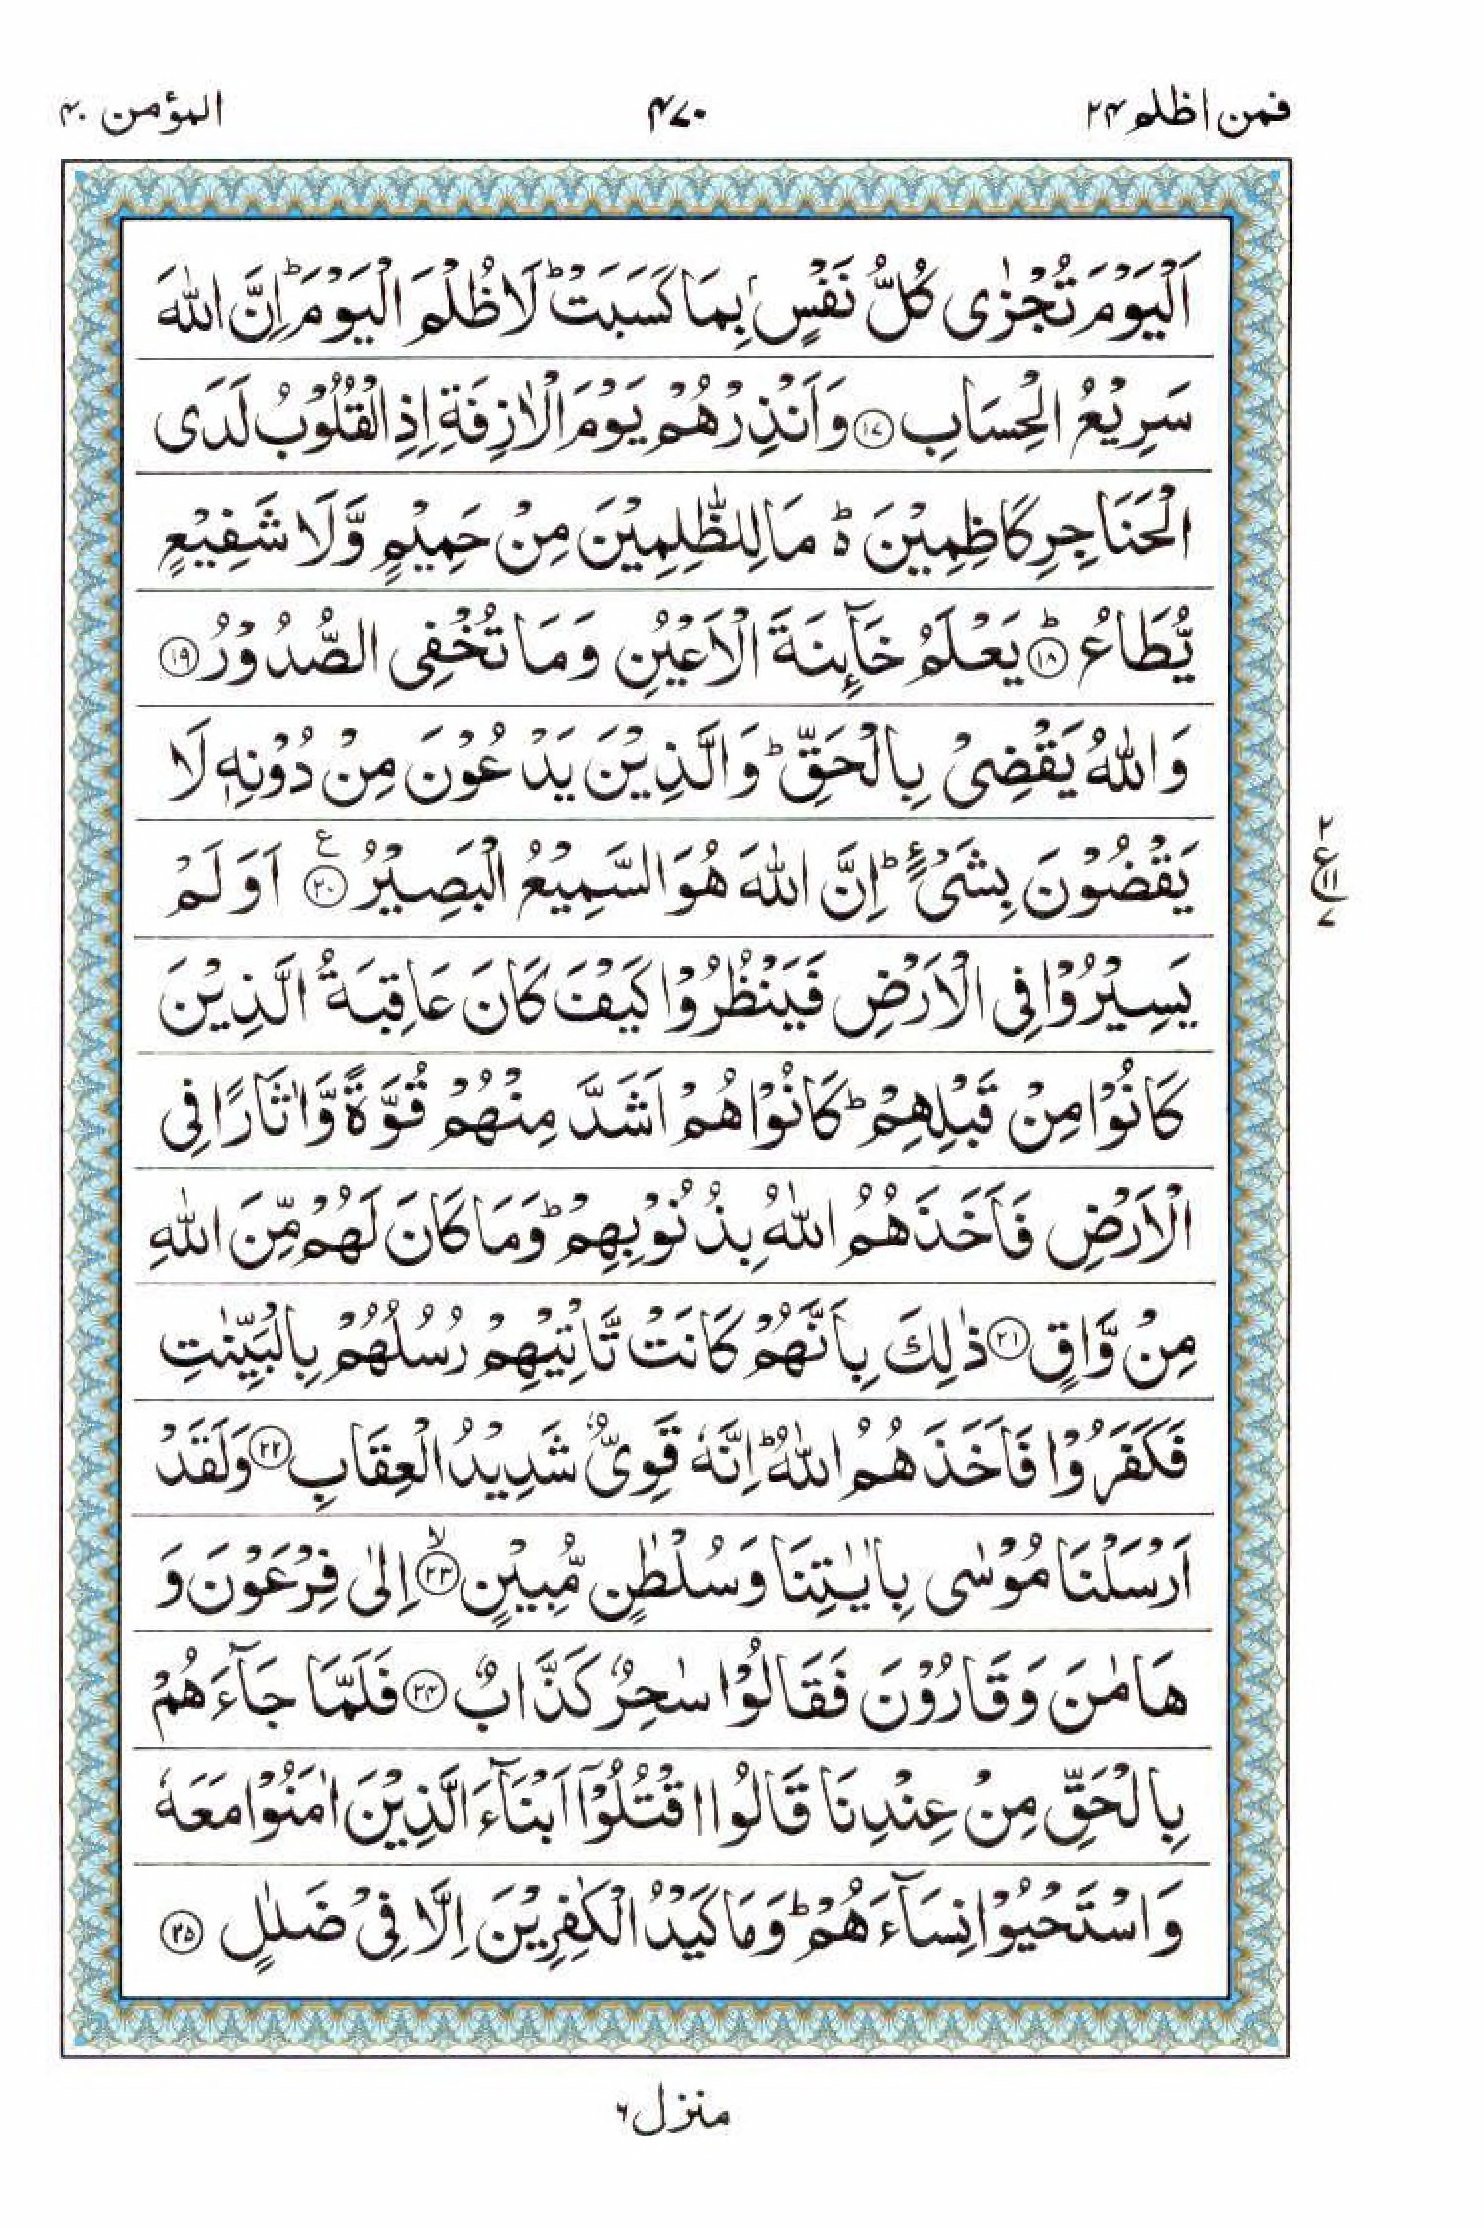 فمن اظلم ۲۴
۴۷۰
المؤمن ۴۰
اَلْيَوْمَ تُجْزٰى كُلُّ نَفْسٍۭ بِمَا كَسَبَتْ ؕ لَا ظُلْمَ الْيَوْمَ ؕ اِنَّ اللّٰهَ
سَرِيْعُ الْحِسَابِ ﴿۱۷﴾ وَاَنْذِرْهُمْ يَوْمَ الْاٰزِفَةِ اِذِ الْقُلُوْبُ لَدَى
الْحَنَاجِرِ كَاظِمِيْنَ ؕ۬ مَا لِلظّٰلِمِيْنَ مِنْ حَمِيْمٍ وَّلَا شَفِيْعٍ
يُّطَاعُ ؕ﴿۱۸﴾ يَعْلَمُ خَآئِنَةَ الْاَعْيُنِ وَمَا تُخْفِى الصُّدُوْرُ ﴿۱۹﴾
وَاللّٰهُ يَقْضِىْ بِالْحَقِّ ؕ وَالَّذِيْنَ يَدْعُوْنَ مِنْ دُوْنِهٖ لَا
يَقْضُوْنَ بِشَىْءٍ ؕ اِنَّ اللّٰهَ هُوَ السَّمِيْعُ الْبَصِيْرُ ﴿۲۰﴾ ع اَوَلَمْ
۲
ع
۱۱
۷
يَسِيْرُوْا فِى الْاَرْضِ فَيَنْظُرُوْا كَيْفَ كَانَ عَاقِبَةُ الَّذِيْنَ
كَانُوْا مِنْ قَبْلِهِمْ ؕ كَانُوْا هُمْ اَشَدَّ مِنْهُمْ قُوَّةً وَّاٰثَارًا فِى
الْاَرْضِ فَاَخَذَهُمُ اللّٰهُ بِذُنُوْبِهِمْ ؕ وَمَا كَانَ لَهُمْ مِّنَ اللّٰهِ
مِنْ وَّاقٍ ﴿۲۱﴾ ذٰلِكَ بِاَنَّهُمْ كَانَتْ تَّاْتِيْهِمْ رُسُلُهُمْ بِالْبَيِّنٰتِ
فَكَفَرُوْا فَاَخَذَهُمُ اللّٰهُ ؕ اِنَّهٗ قَوِىٌّ شَدِيْدُ الْعِقَابِ ﴿۲۲﴾ وَلَقَدْ
اَرْسَلْنَا مُوْسٰى بِاٰيٰتِنَا وَسُلْطٰنٍ مُّبِيْنٍ ۙ﴿۲۳﴾ اِلٰى فِرْعَوْنَ وَ
هَامٰنَ وَقَارُوْنَ فَقَالُوْا سٰحِرٌ كَذَّابٌ ﴿۲۴﴾ فَلَمَّا جَآءَهُمْ
بِالْحَقِّ مِنْ عِنْدِنَا قَالُوا اقْتُلُوْۤا اَبْنَآءَ الَّذِيْنَ اٰمَنُوْا مَعَهٗ
وَاسْتَحْيُوْا نِسَآءَهُمْ ؕ وَمَا كَيْدُ الْكٰفِرِيْنَ اِلَّا فِىْ ضَلٰلٍ ﴿۲۵﴾
منزل ۶